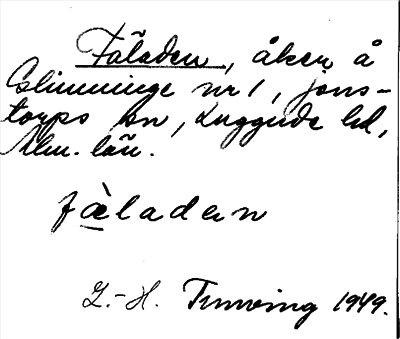 Fäladen, åker å
Glimminge nr 1, Jons-
torps sn, Luggude hd,
Mlm. län.
fæ̀ladan
I.-H. Tunving 1949.